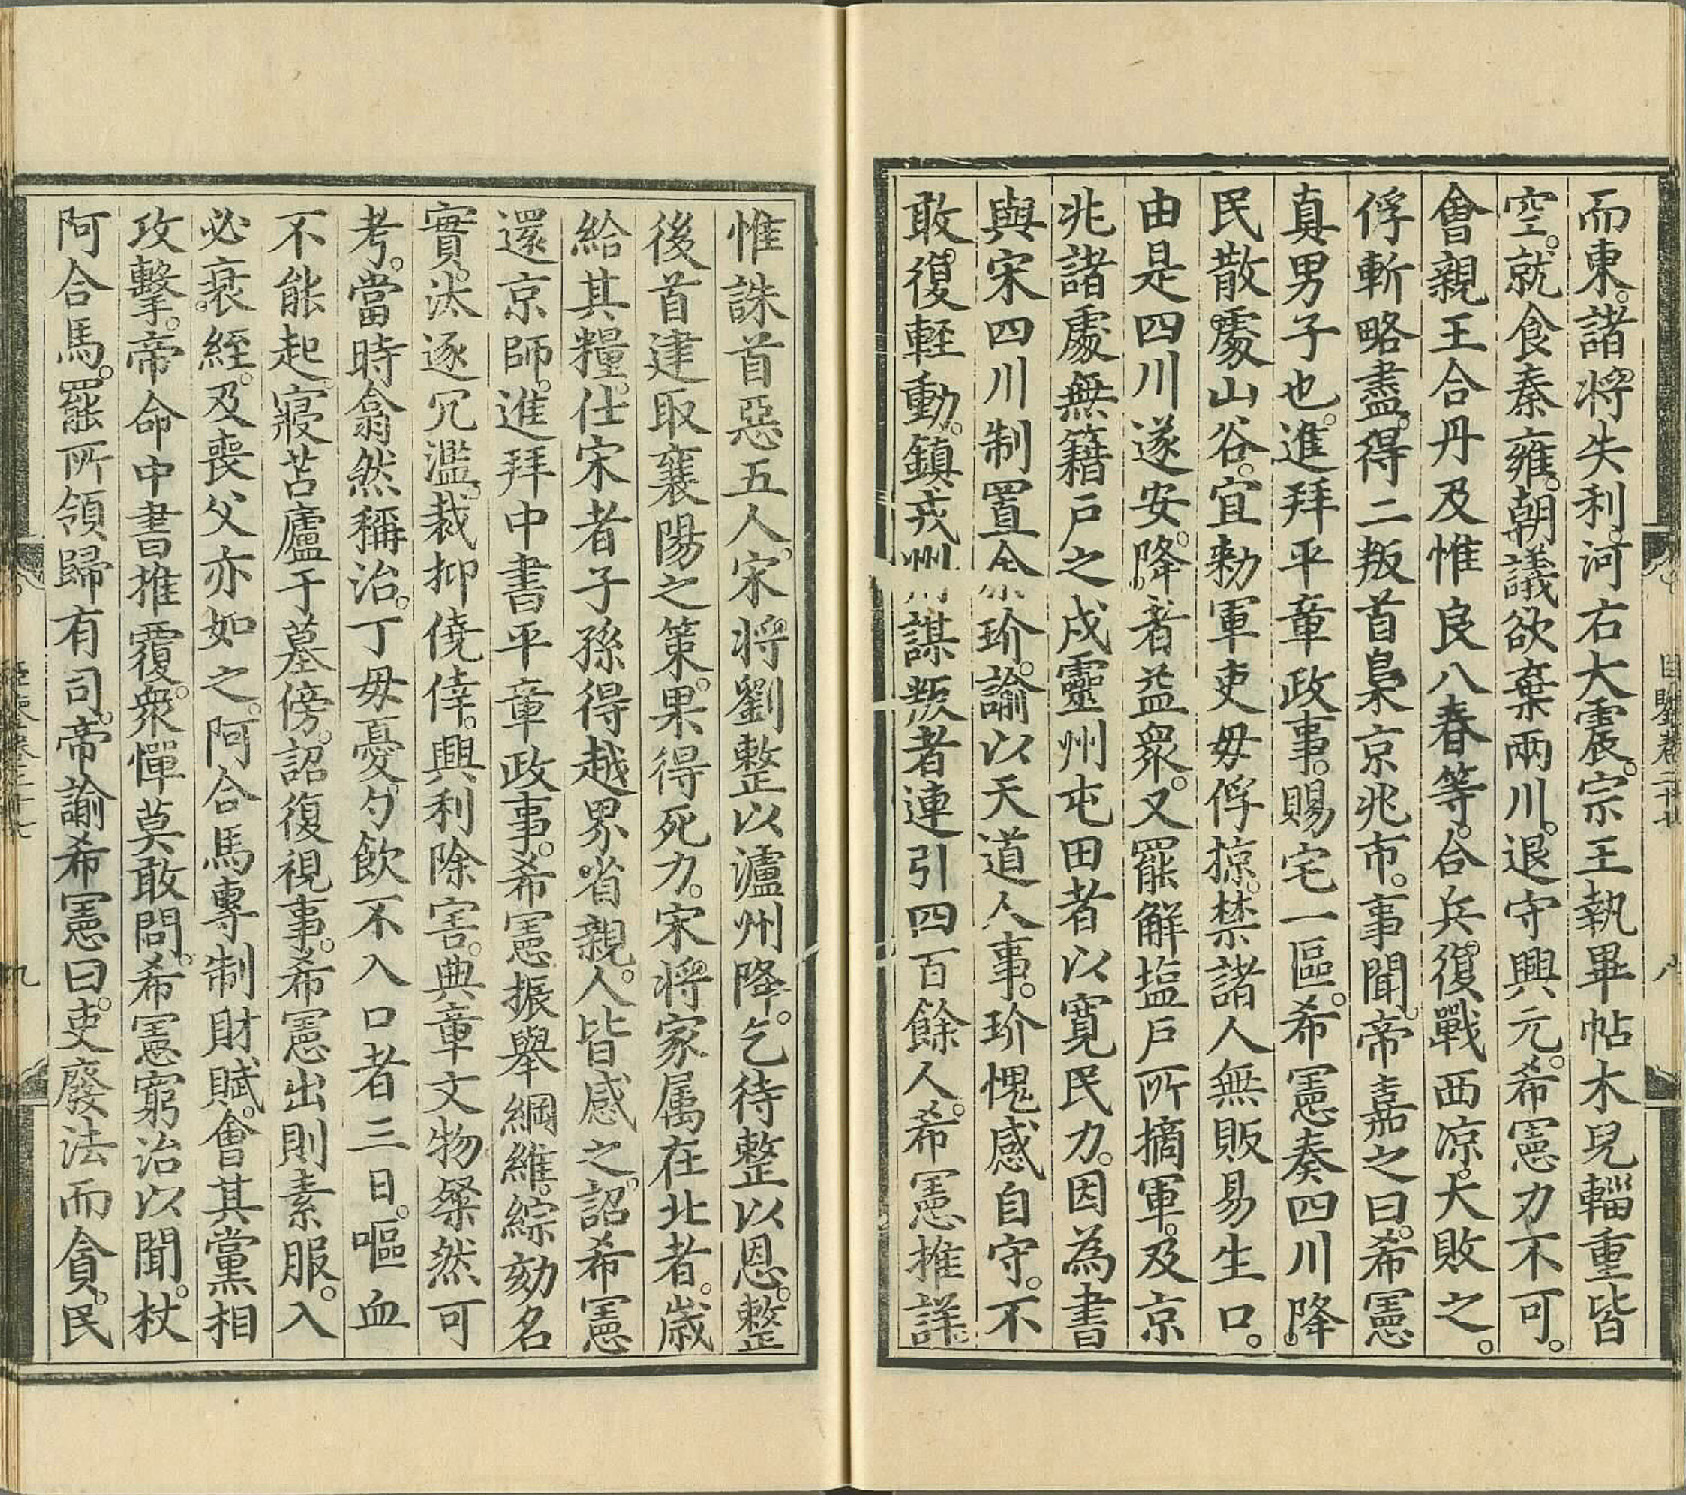 而東。諸將失利。河右大震。宗王執畢帖木兒輜重皆
空。就食秦雍。朝議欲棄兩川。退守興元。希憲力不可。
會親王合丹及惟良八春等。合兵復戰西凉。大敗之。
俘斬略盡。得二叛首梟京兆市。事聞。帝嘉之曰。希憲
真男子也。進拜平章政事。賜宅一區。希憲奏四川降
民散處山谷。宜勑軍吏毋俘掠。禁諸人無販易生口。
由是四川遂安。降者益衆。又罷解塩戶所摘軍。及京
兆諸處無籍戶之戍靈州屯田者以寬民力。因為書
與宋四川制置余玠。諭以天道人事。玠愧感自守。不
敢復輕動。鎮戎州謀叛者連引四百餘人。希憲推詳。
惟誅首惡五人。宋將劉整以瀘州降。乞待整以恩。整
後首建取襄陽之策。果得死力。宋將家属在北者。歲
給其糧。仕宋者子孫得越界省親。人皆感之。詔希憲
還京師。進拜中書平章政事。希憲振舉綱維。綜劾名
實。汰逐冗濫。裁抑僥倖。興利除害。典章文物粲然可
考。當時翕然稱治。丁毋憂。勺飲不入口者三日。嘔血
不能起。寢苫廬于墓傍。詔復視事。希憲出則素服。入
必衰絰。及喪父亦如之。阿合馬專制財賦。會其黨相
攻擊。帝命中書推覆。衆憚莫敢問。希憲窮治以聞。杖
阿合馬。罷所領歸有司。帝諭希憲曰。吏廢法而貪。民